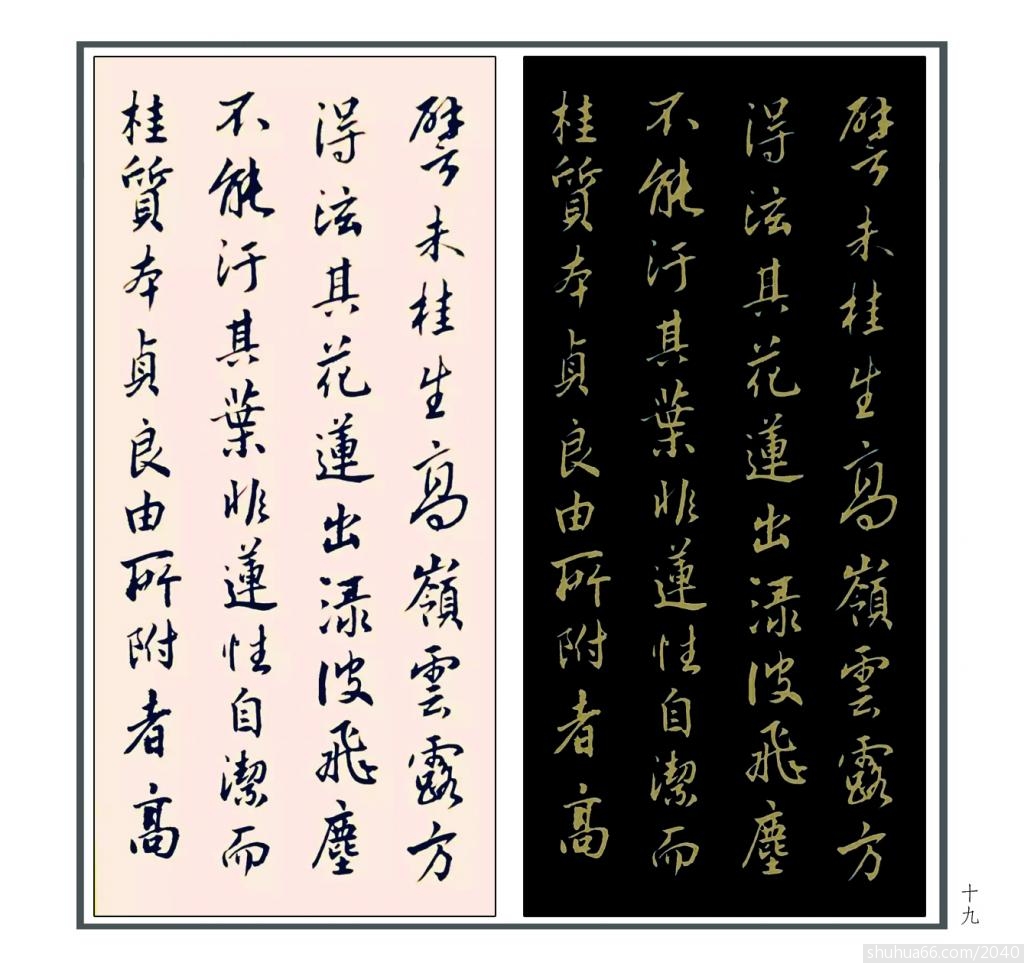 譬未桂生高嶺雲露方
得泫其花蓮出淥波飛塵
不能汙其葉非蓮性自潔而
桂質本貞良由所附者高
譬未桂生高嶺雲露方
得泫其花蓮出淥波飛塵
不能汙其葉非蓮性自潔而
桂質本貞良由所附者高
十九
shuhua66.com/2040